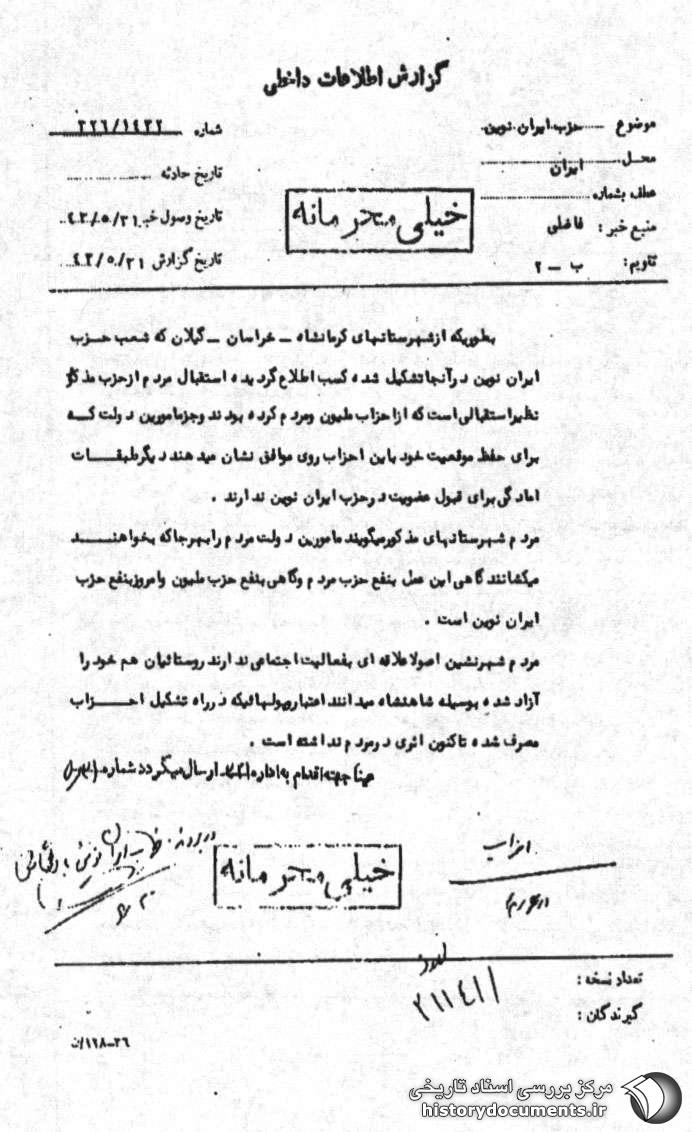 گزارش اطلاعات داخلی
موضوع حزب ایران نوین
محل ایران
عطف بشماره
منبع خبر : فاضلی
تقویم : ب - ۲
شماره ۳۲۶/۱۴۳۲
تاریخ حادثه
تاریخ وصول خبر ۴۳/۵/۳۱
تاریخ گزارش ۴۳/۵/۳۱
خیلی محرمانه
بطوریکه از شهرستانهای کرمانشاه - خراسان - گیلان که شعب حزب
ایران نوین در آنجا تشکیل شده کسب اطلاع گردیده استقبال مردم از حزب مذکور
نظیر استقبالی است که از احزاب ملیون و مردم کرده بودند و جز مامورین دولت که
برای حفظ موقعیت خود باین احزاب روی موافق نشان میدهند دیگر طبقات
امادگی برای قبول عضویت در حزب ایران نوین ندارند .
مردم شهرستانهای مذکور میگویند مامورین دولت مردم را بهر جا که بخواهند
میکشانند گاهی این عمل بنفع حزب مردم و گاهی بنفع حزب ملیون و امروز بنفع حزب
ایران نوین است .
مردم شهرنشین اصولا علاقه ای بفعالیت اجتماعی ندارند روستائیان هم خود را
آزاد شده بوسیله شاهنشاه میدانند اعتبار و پولهائیکه در راه تشکیل احزاب
مصرف شده تاکنون اثری در مردم نداشته است .
عینا جهت اقدام به اداره ارسال میگردد شماره
احزاب
در پرونده حزب ایران نوین بایگانی
خیلی محرمانه
تعداد نسخه :
گیرندگان :
۲۱۱۴۱۱
۳۶-۱۲۸/ن
مرکز بررسی اسناد تاریخی
historydocuments.ir